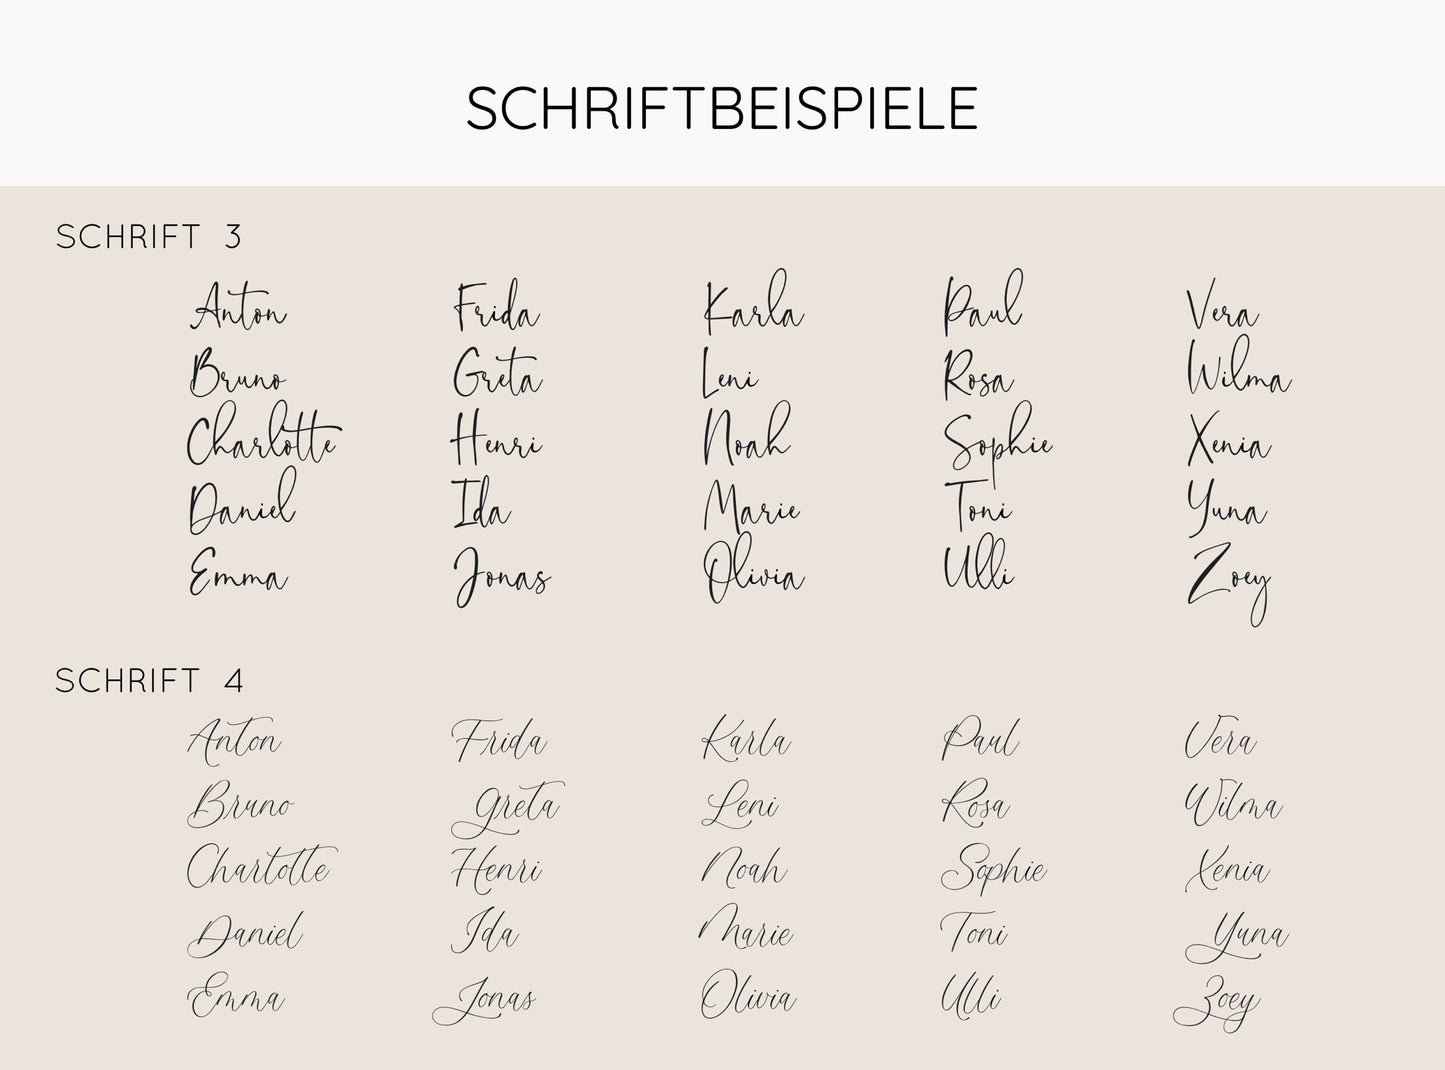 SCHRIFTBEISPIELE
SCHRIFT 3
Anton Frida Karla Paul Vera
Bruno Greta Leni Rosa Wilma
Charlotte Henri Noah Sophie Xenia
Daniel Ida Marie Toni Yuna
Emma Jonas Olivia Ulli Zoey
SCHRIFT 4
Anton Frida Karla Paul Vera
Bruno Greta Leni Rosa Wilma
Charlotte Henri Noah Sophie Xenia
Daniel Ida Marie Toni Yuna
Emma Jonas Olivia Ulli Zoey